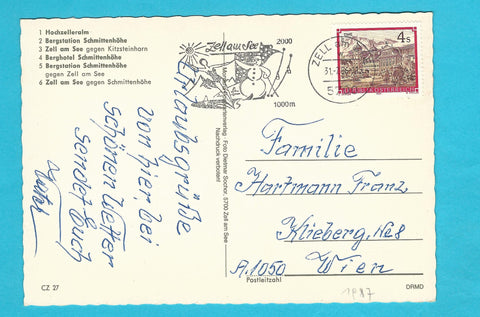 1 Hochzelleralm
2 Bergstation Schmittenhöhe
3 Zell am See gegen Kitzsteinhorn
4 Berghotel Schmittenhöhe
5 Bergstation Schmittenhöhe
gegen Zell am See
6 Zell am See gegen Schmittenhöhe
Zell am See
2000
1000m
ZELL am
4s
REPUBLIK ÖSTERREICH
Urlaubsgrüße
von hier, bei
schönem Wetter
sendet Euch
Foto Dietmar Sochor, 5700 Zell am See
Nachdruck verboten!
Familie
Hartmann Franz
Klieberg. No 8
A.1050 Wien
Postleitzahl
CZ 27
1987
DRMD